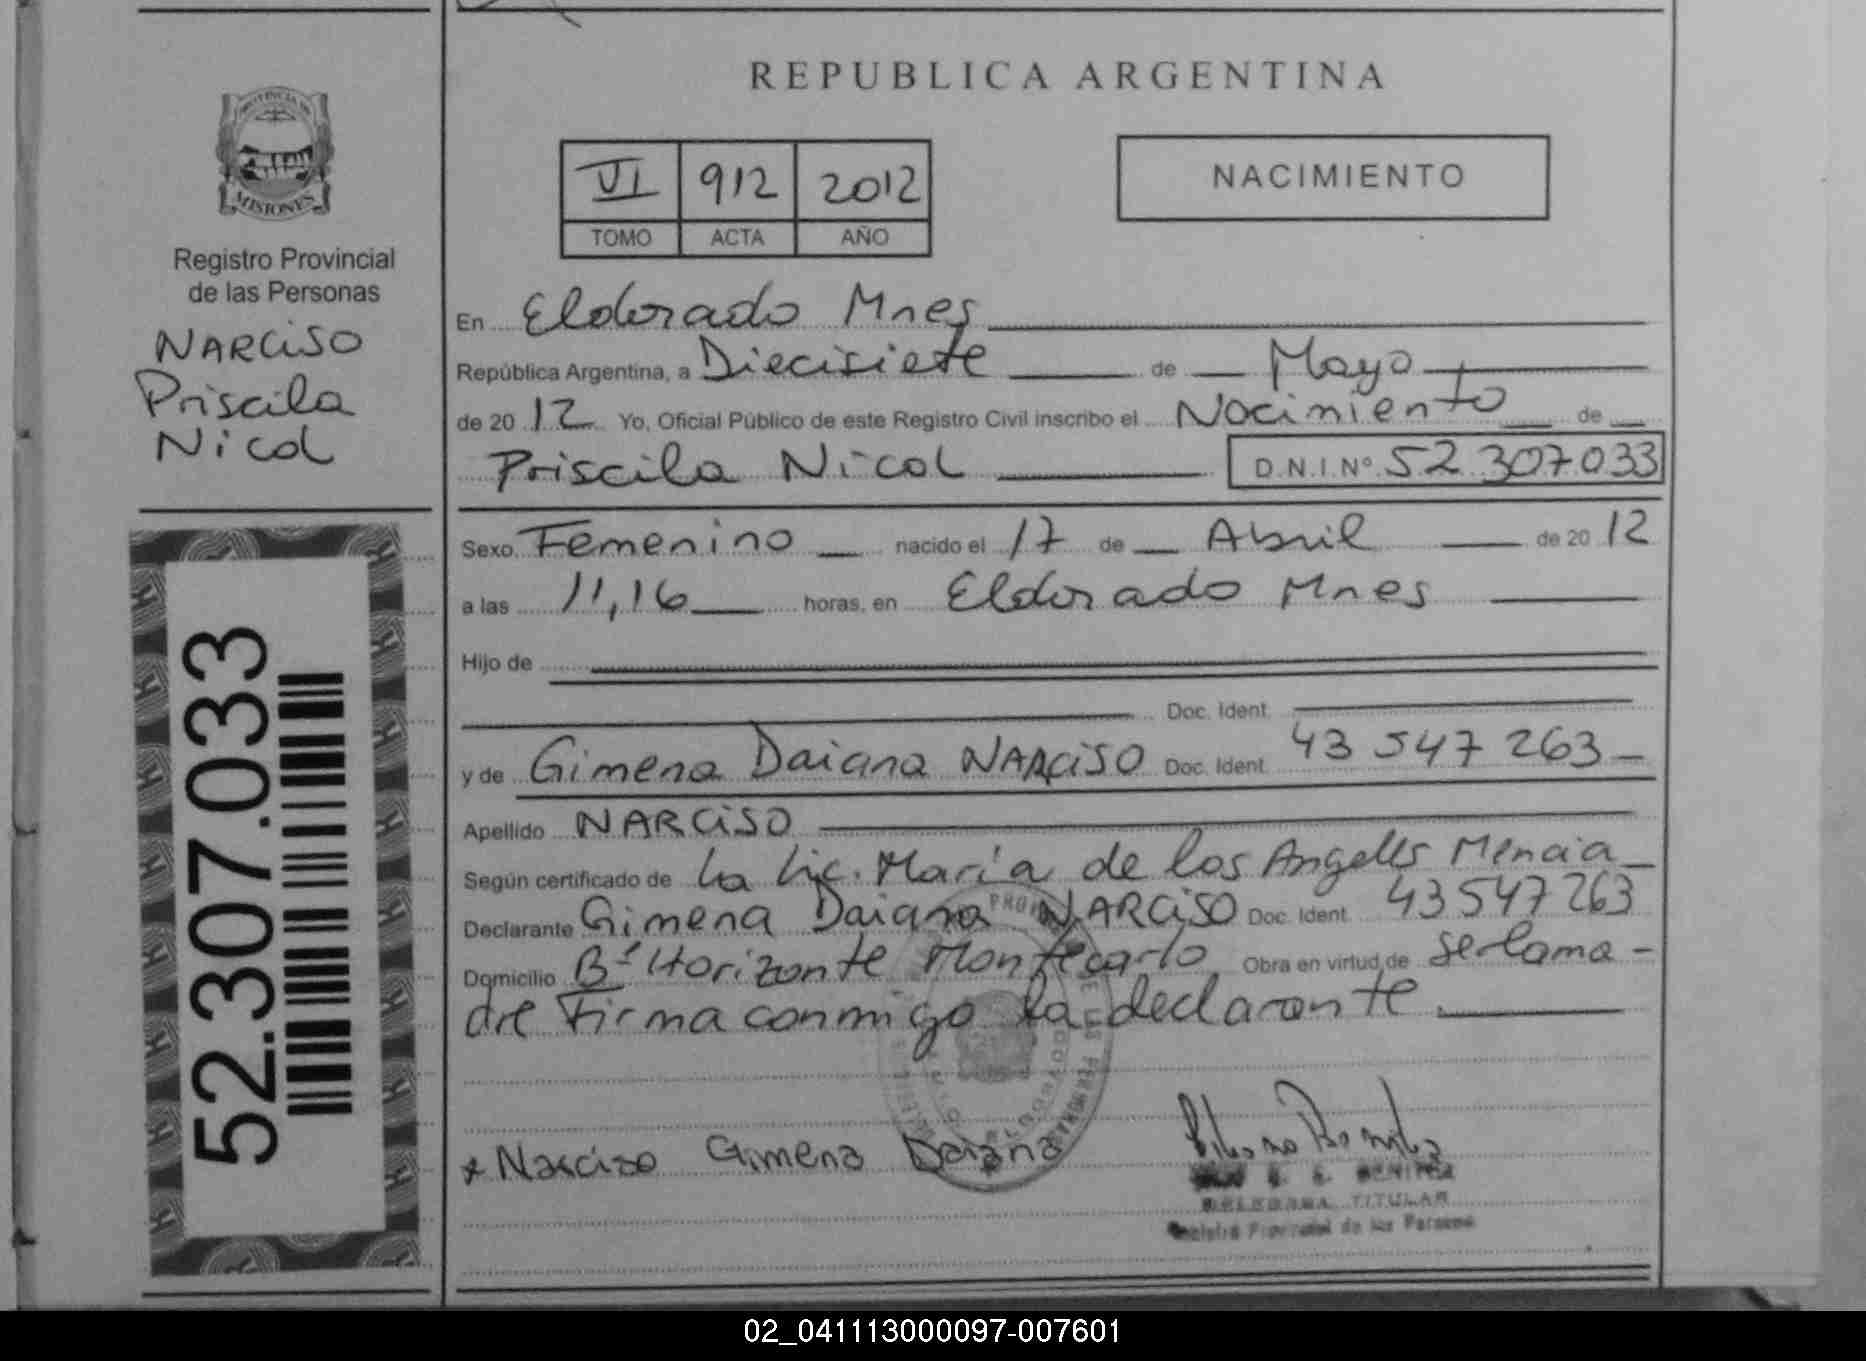 PROVINCIA DE
MISIONES
Registro Provincial
de las Personas
NARCISO
Priscila
Nicol
52.307.033
REPUBLICA ARGENTINA
VI 912 2012
TOMO ACTA AÑO
NACIMIENTO
En Eldorado Mnes
República Argentina, a Diecisiete de Mayo
de 20 12 Yo, Oficial Público de este Registro Civil inscribo el Nacimiento de
Priscila Nicol D.N.I.Nº 52 307 033
Sexo Femenino nacido el 17 de Abril de 20 12
a las 11,16 horas, en Eldorado Mnes
Hijo de
Doc. Ident.
y de Gimena Daiana NARCISO Doc. Ident. 43 547 263
Apellido NARCISO
Según certificado de La Lic. María de los Angeles Mencia
Declarante Gimena Daiana NARCISO Doc. Ident. 43 547 263
Domicilio Bº Horizonte Montecarlo Obra en virtud de ser la ma-
dre Firma conmigo la declarante
Narciso Gimena Daiana
TITULAR
Registro Provincial de las Personas
02_041113000097-007601